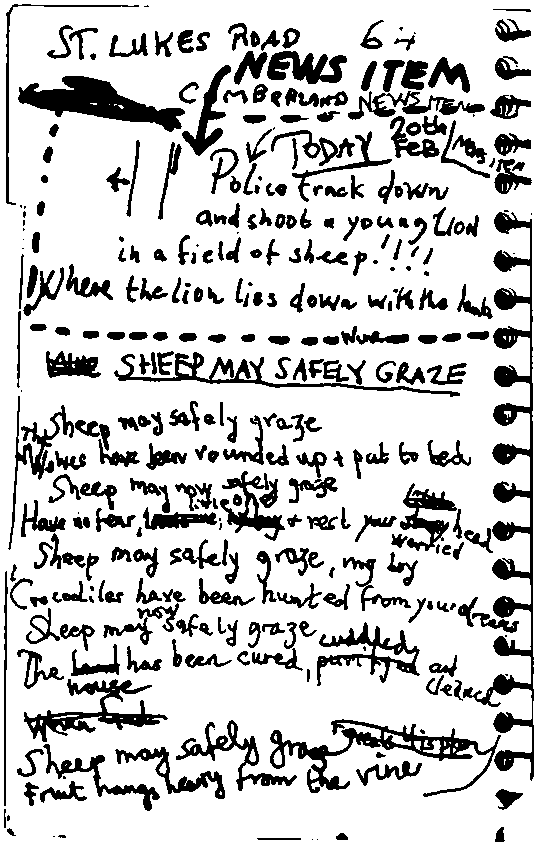 ST. LUKES ROAD 64
NEWS ITEM
CUMBERLAND NEWS ITEM
TODAY 20th FEB NEWS ITEM
Police track down
and shoot a young LION
in a field of sheep!!!!
Where the lion lies down with the lamb
SHEEP MAY SAFELY GRAZE
Sheep may safely graze
The Wolves have been rounded up + put to bed
Sheep may now safely graze
Have no fear, little one, + rest your worried head
Sheep may safely graze, my boy
Crocodiles have been hunted from your dreams
Sheep may now safely graze
The house has been cured, cuddled, and cleaned
Sheep may safely graze
Fruit hangs heavy from the vine